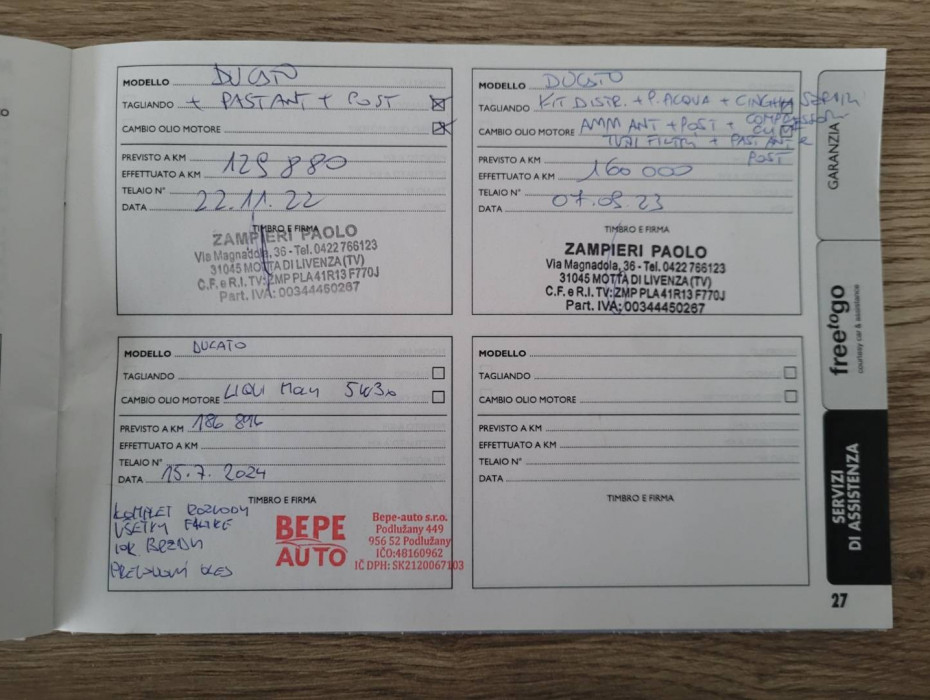 MODELLO DUCATO
TAGLIANDO + PAST ANT + POST
CAMBIO OLIO MOTORE
PREVISTO A KM
EFFETTUATO A KM 129 880
TELAIO N°
DATA 22.11.22
TIMBRO E FIRMA
ZAMPIERI PAOLO
Via Magnadola, 36 - Tel. 0422 766123
31045 MOTTA DI LIVENZA (TV)
C.F. e R.I. TV: ZMP PLA 41R13 F770J
Part. IVA: 00344450267
MODELLO DUCATO
TAGLIANDO KIT DISTR. + P. ACQUA + CINGHIA SERVIZI
CAMBIO OLIO MOTORE AMM ANT + POST + COMPRESSORE
TUTTI FILTRI + PAST ANT E
POST
PREVISTO A KM
EFFETTUATO A KM 160 000
TELAIO N°
DATA 23
TIMBRO E FIRMA
ZAMPIERI PAOLO
Via Magnadola, 36 - Tel. 0422 766123
31045 MOTTA DI LIVENZA (TV)
C.F. e R.I. TV: ZMP PLA 41R13 F770J
Part. IVA: 00344450267
MODELLO DUCATO
TAGLIANDO
CAMBIO OLIO MOTORE LIQUI Moly 5W30
PREVISTO A KM 186 896
EFFETTUATO A KM
TELAIO N°
DATA 15.7.2024
TIMBRO E FIRMA
KOMPLET ROZVODY
VSETKY FILTRE
BRZDY
PREVODOVY OLEJ
BEPE
AUTO
Bepe-auto s.r.o.
Podlužany 449
956 52 Podlužany
IČO:48160962
IČ DPH: SK2120067103
MODELLO
TAGLIANDO
CAMBIO OLIO MOTORE
PREVISTO A KM
EFFETTUATO A KM
TELAIO N°
DATA
TIMBRO E FIRMA
GARANZIA
freetogo
courtesy car & assistance
SERVIZI
DI ASSISTENZA
27